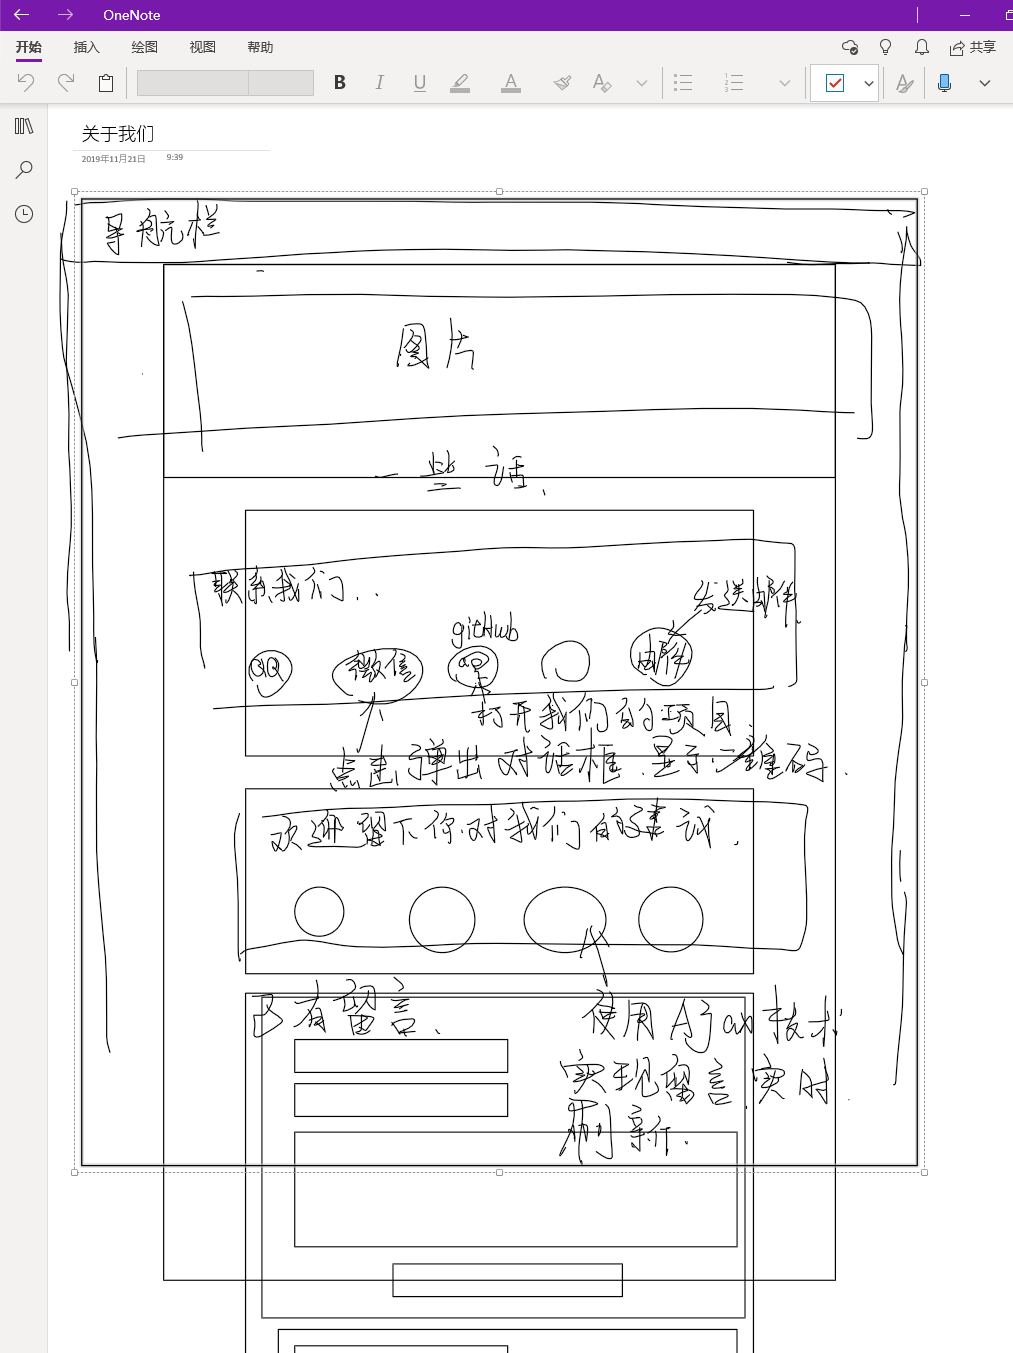 OneNote
开始 插入 绘图 视图 帮助 共享
B I U A A
关于我们
2019年11月21日 9:39
导航栏
图片
一些话.
联系我们...
发送邮件.
gitHub
QQ 微信 邮件
打开我们的项目.
点击弹出对话框.显示二维码.
欢迎留下你对我们的建议.
已有留言.
使用Ajax技术
实现留言.实时.
刷新.